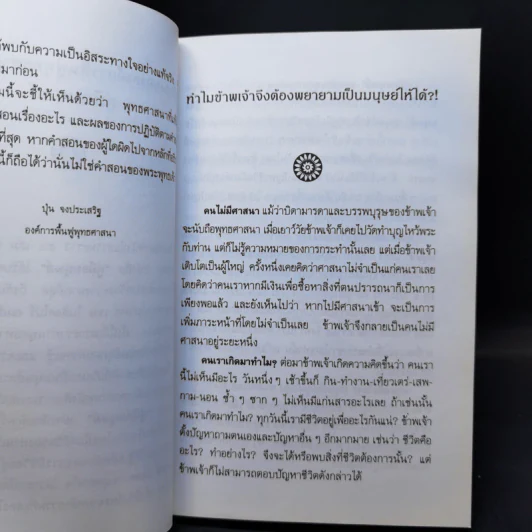 พบกับความเป็นอิสระทางใจอย่างแท้จริง
มาก่อน
นี้จะชี้ให้เห็นด้วยว่า พุทธศาสนา
สอนเรื่องอะไร และผลของการปฏิบัติตาม
ที่สุด หากคำสอนของผู้ใดผิดไปจากหลัก
นี้ก็ถือได้ว่านั่นไม่ใช่คำสอนของพระพุทธ
ปุ่น จงประเสริฐ
องค์การฟื้นฟูพุทธศาสนา
ทำไมข้าพเจ้าจึงต้องพยายามเป็นมนุษย์ให้ได้?!
คนไม่มีศาสนา แม้ว่าบิดามารดาและบรรพบุรุษของข้าพเจ้า
จะนับถือพุทธศาสนา เมื่อเยาว์วัยข้าพเจ้าก็เคยไปวัดทำบุญไหว้พระ
กับท่าน แต่ก็ไม่รู้ความหมายของการกระทำนั้นเลย แต่เมื่อข้าพเจ้า
เติบโตเป็นผู้ใหญ่ ครั้งหนึ่งเคยคิดว่าศาสนาไม่จำเป็นแก่คนเราเลย
โดยคิดว่าคนเราหากมีเงินเพื่อซื้อหาสิ่งที่ตนปรารถนาก็เป็นการ
เพียงพอแล้ว และยังเห็นไปว่า หากไปมีศาสนาเข้า จะเป็นการ
เพิ่มภาระหน้าที่โดยไม่จำเป็นเลย ข้าพเจ้าจึงกลายเป็นคนไม่มี
ศาสนาอยู่ระยะหนึ่ง
คนเราเกิดมาทำไม? ต่อมาข้าพเจ้าเกิดความคิดขึ้นว่า คนเรา
นี้ไม่เห็นมีอะไร วันหนึ่ง ๆ เช้าขึ้นก็ กิน-ทำงาน-เที่ยวเตร่-เสพ-
กาม-นอน ซ้ำ ๆ ซาก ๆ ไม่เห็นมีแก่นสารอะไรเลย ถ้าเช่นนั้น
คนเราเกิดมาทำไม? ทุกวันนี้เรามีชีวิตอยู่เพื่ออะไรกันแน่? ข้าพเจ้า
ตั้งปัญหาถามตนเองและปัญหาอื่น ๆ อีกมากมาย เช่นว่า ชีวิตคือ
อะไร? ทำอย่างไร? จึงจะได้หรือพบสิ่งที่ชีวิตต้องการนั้น? แต่
ข้าพเจ้าก็ไม่สามารถตอบปัญหาชีวิตดังกล่าวได้